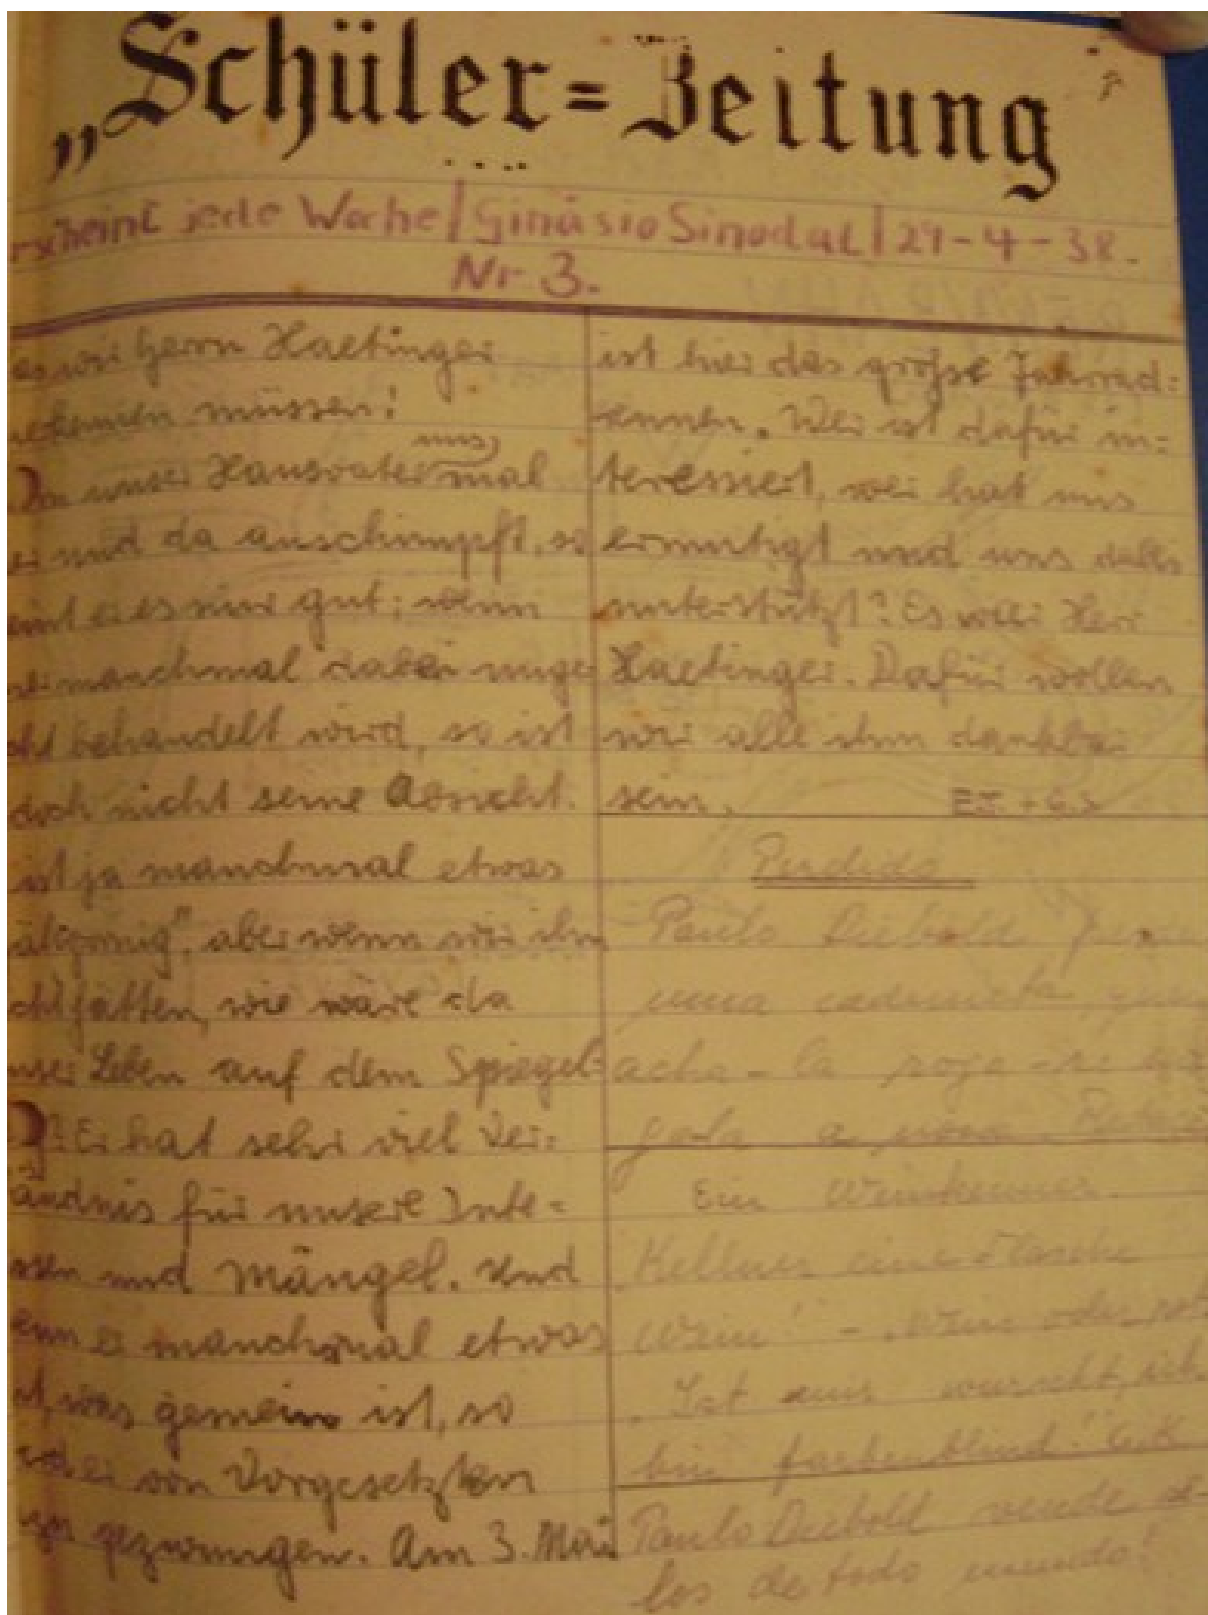 „Schüler=Zeitung
rscheint jede Woche | Ginásio Sinodal | 29-4-38.
Nr 3.
wir Herrn Haetinger
müssen!
unser Hausvater uns, mal
und da anschimpft, so
es nur gut; wenn
manchmal dabei unge
cht behandelt wird, so ist
doch nicht seine Absicht.
ist ja manchmal etwas
aber wenn wir ihn
cht hätten, wie wäre da
nser Leben auf dem Spiegel-
? Er hat sehr viel Ver=
ändnis für unsere Inte=
ssen und Mängel. Und
enn er manchmal etwas
t, was gemein ist, so
er von Vorgesetzten
gezwungen. Am 3. Mai
ist hier das große Fahrrad=
rennen. Wer ist dafür in=
teressiert, wer hat uns
ermutigt und uns
unterstützt? Es war Herr
Haetinger. Dafür wollen
wir alle ihm dankbar
sein.
Perdido
Paulo Diebold
uma caderneta,
acha-la roga-se
a
Ein Weinkenner.
Kellner eine Flasche
Wein! - oder rot
Ist mir wurscht, ich
bin farbenblind!
Paulo Diebold vende se-
los de todo mundo!